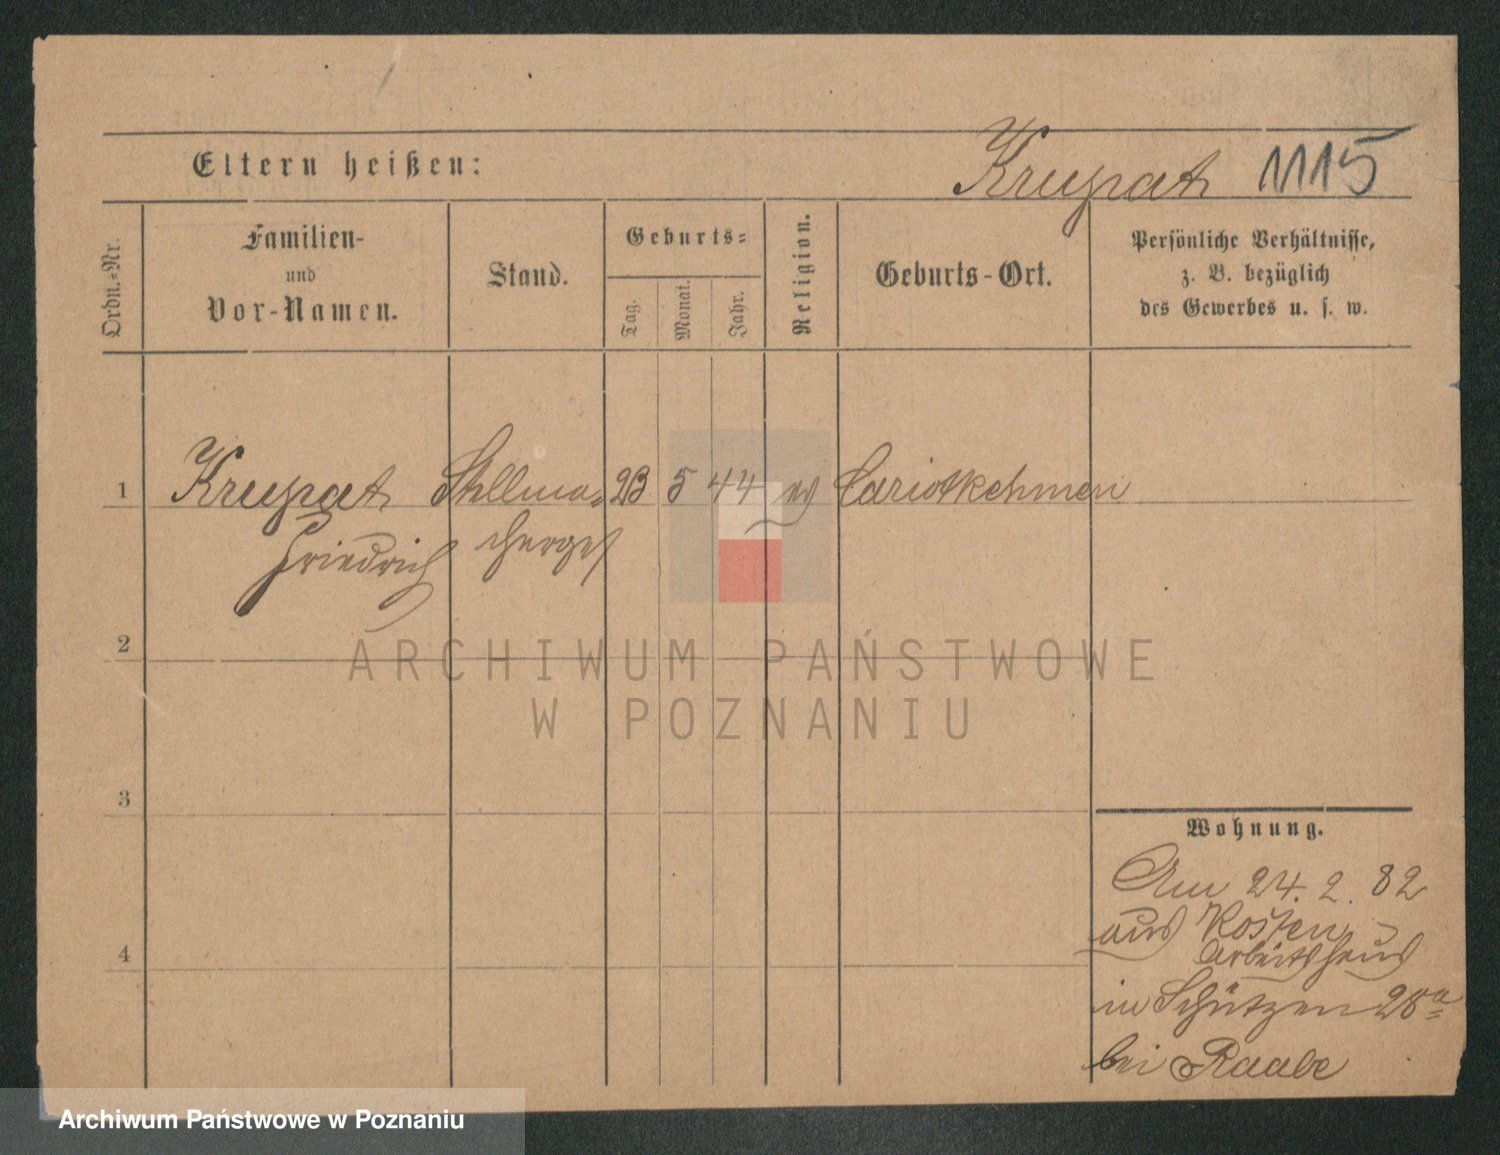 Eltern heißen:
Krupat 1115
Ordn.-Nr.
Familien-
und
Vor-Namen.
Stand.
Geburts-
Tag.
Monat.
Jahr.
Religion.
Geburts-Ort.
Persönliche Verhältnisse,
z. B. bezüglich
des Gewerbes u. s. w.
1 Krupat Stellma- 23 5 44 ev Cariotkehmen
Friedrich cherges
2
ARCHIWUM PAŃSTWOWE
W POZNANIU
3
Wohnung.
Am 24. 2. 82
aus Kosten
Arbeitshaus
4
in Schützen 28a
bei Raabe
Archiwum Państwowe w Poznaniu